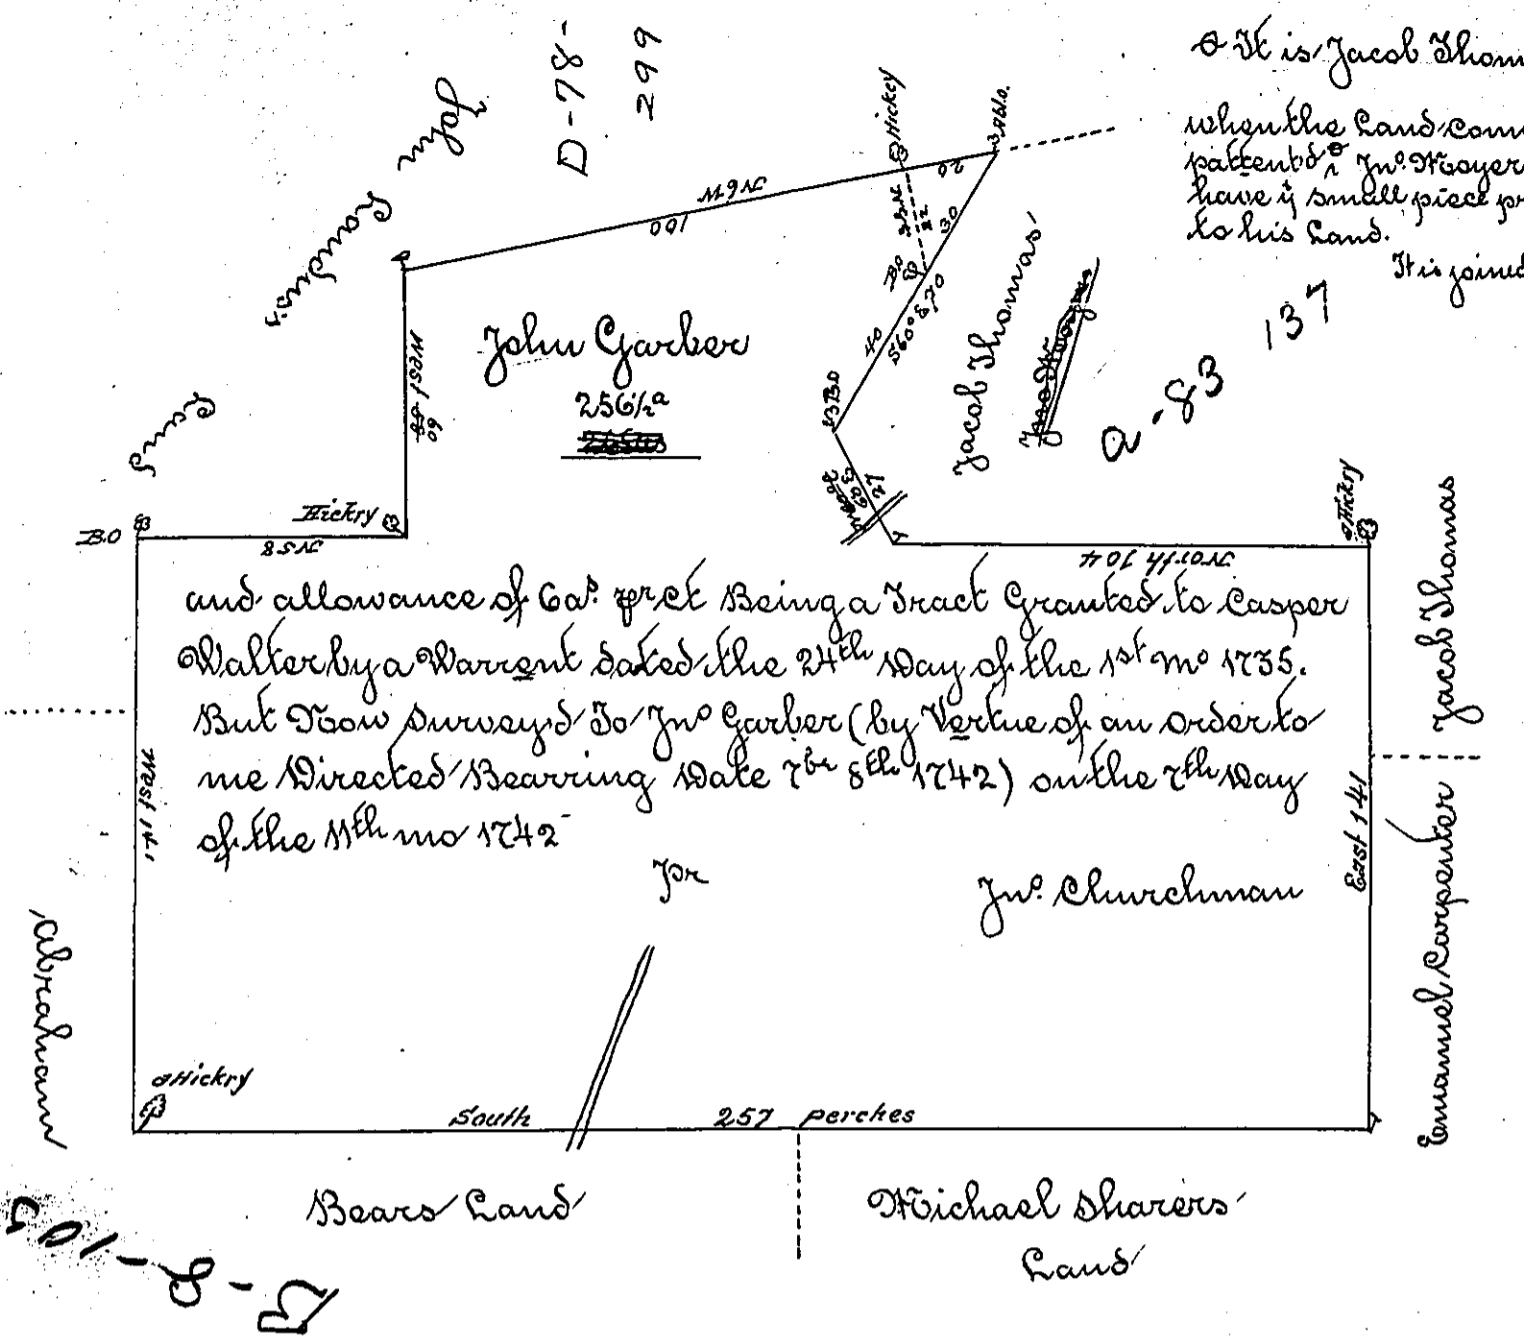 D-78-
299
It is Jacob Thom
when the Land com
pattentd Jno. Moyer
have ÿ small piece pr
to his Land.
It is joined
John
Landis's
Land
Hickey
N6W
100
20
22
30
B.O
40
S60°E70
West
60
John Garber
256½a
Jacob Thomas
a-83 137
B.O
Hickry
N58
27
North 104
Hickry
Jacob Thomas
and allowance of 6a. pr Ct Being a Tract Granted to Casper
Walter by a Warrent dated the 24th Day of the 1st mo 1735.
But Now Survey'd To Jno Garber (by Vertue of an order to
me Directed Bearring Date 7br 8th 1742) on the 7th Day
of the 11th mo 1742
pr
Jno. Churchman
West 141
East 141
Emanuel Carpenter
Abraham
Hickry
South 257 perches
Bears Land
Michael Sharers
Land